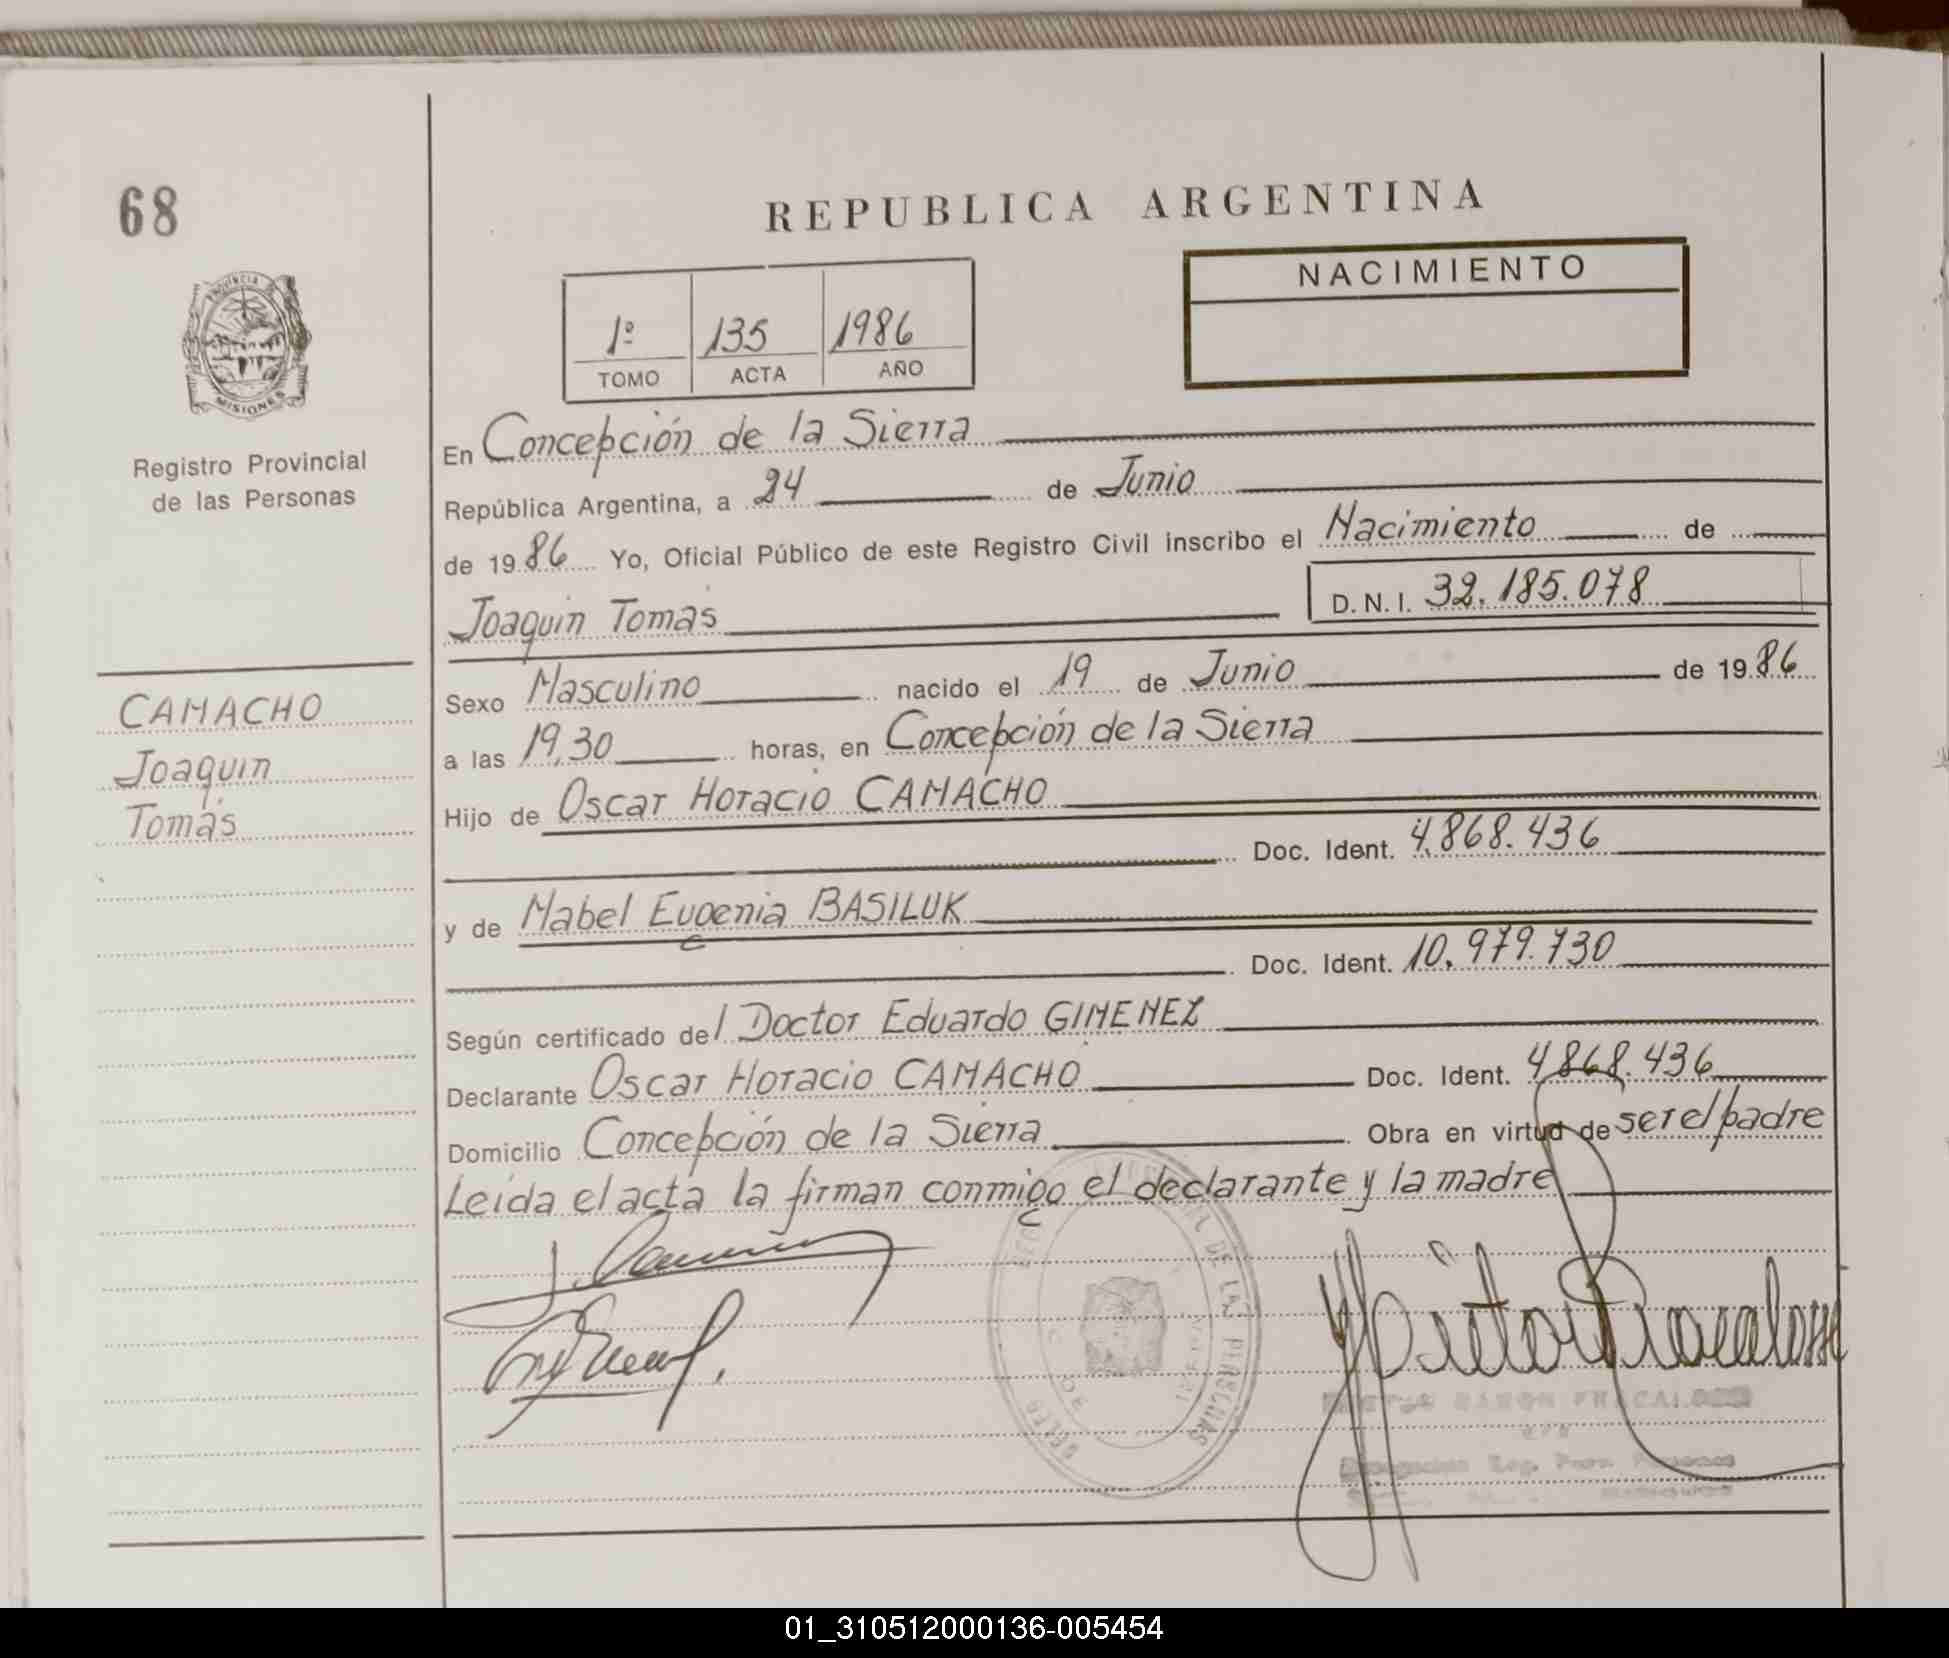 68
REPUBLICA ARGENTINA
NACIMIENTO
1º 135 1986
TOMO ACTA AÑO
PROVINCIA DE
MISIONES
Registro Provincial
de las Personas
CAMACHO
Joaquin
Tomás
En Concepción de la Sierra
República Argentina, a 24 de Junio
de 1986 Yo, Oficial Público de este Registro Civil inscribo el Nacimiento de
Joaquin Tomás D. N. I. 32.185.078
Sexo Masculino nacido el 19 de Junio de 1986
a las 19,30 horas, en Concepción de la Sierra
Hijo de Oscar Horacio CAMACHO
Doc. Ident. 4.868.436
y de Mabel Eugenia BASILUK
Doc. Ident. 10.979.730
Según certificado del Doctor Eduardo GIMENEZ
Declarante Oscar Horacio CAMACHO Doc. Ident. 4868.436
Domicilio Concepción de la Sierra Obra en virtud de ser el padre
Leída el acta la firman conmigo el declarante y la madre
DE LAS PERSONAS
RAMON FRACALOSSI
01_310512000136-005454